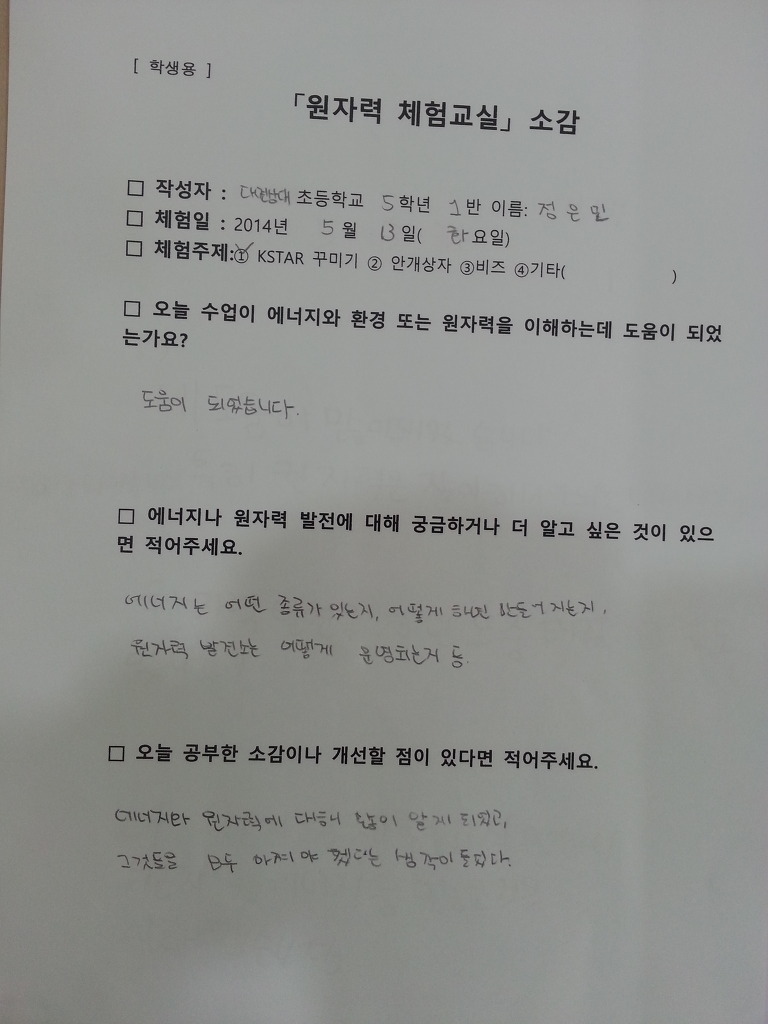 [ 학생용 ]
「원자력 체험교실」 소감
□ 작성자 : 초등학교 5학년 1반 이름: 정은민
□ 체험일 : 2014년 5월 13일( 화요일)
□ 체험주제:① KSTAR 꾸미기 ② 안개상자 ③비즈 ④기타( )
□ 오늘 수업이 에너지와 환경 또는 원자력을 이해하는데 도움이 되었
는가요?
도움이 되었습니다.
□ 에너지나 원자력 발전에 대해 궁금하거나 더 알고 싶은 것이 있으
면 적어주세요.
에너지는 어떤 종류가 있는지, 어떻게 해면 만들어지는지,
원자력 발전소는 어떻게 운영되는지 등.
□ 오늘 공부한 소감이나 개선할 점이 있다면 적어주세요.
에너지와 원자력에 대해 많이 알게 되었고,
그것들을 모두 아껴야 겠다는 생각이 들었다.